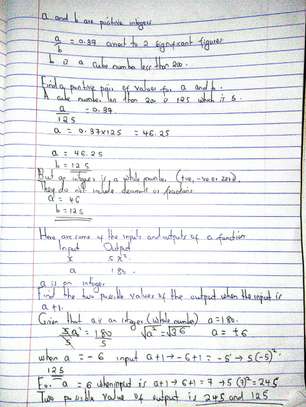 a and b are positive integers
a/b = 0.37 correct to 2 significant figures
b is a cube number less than 200.
Find a positive pair of values for a and b.
A cube number less than 200 is 125 which is 5.
a/125 = 0.37
a = 0.37 x 125 = 46.25
a = 46.25
b = 125
But an integer is a whole number (+ve, -ve or zero).
They do not include decimals or fractions
a = 46
b = 125
Here are some of the inputs and outputs of a function
Input Output
x 5x².
a 180.
a is an integer
Find the two possible values of the output when the input is
a + 1.
Given that a is an integer (whole number) a = 180.
5a²/5 = 180/5 √a² = √36 a = ±6
when a = -6 input a+1 → -6+1 = -5 → 5(-5)².
125
For a = 6 when input is a+1 → 6+1 = 7 → 5(7)² = 245
Two possible value of output is 245 and 125